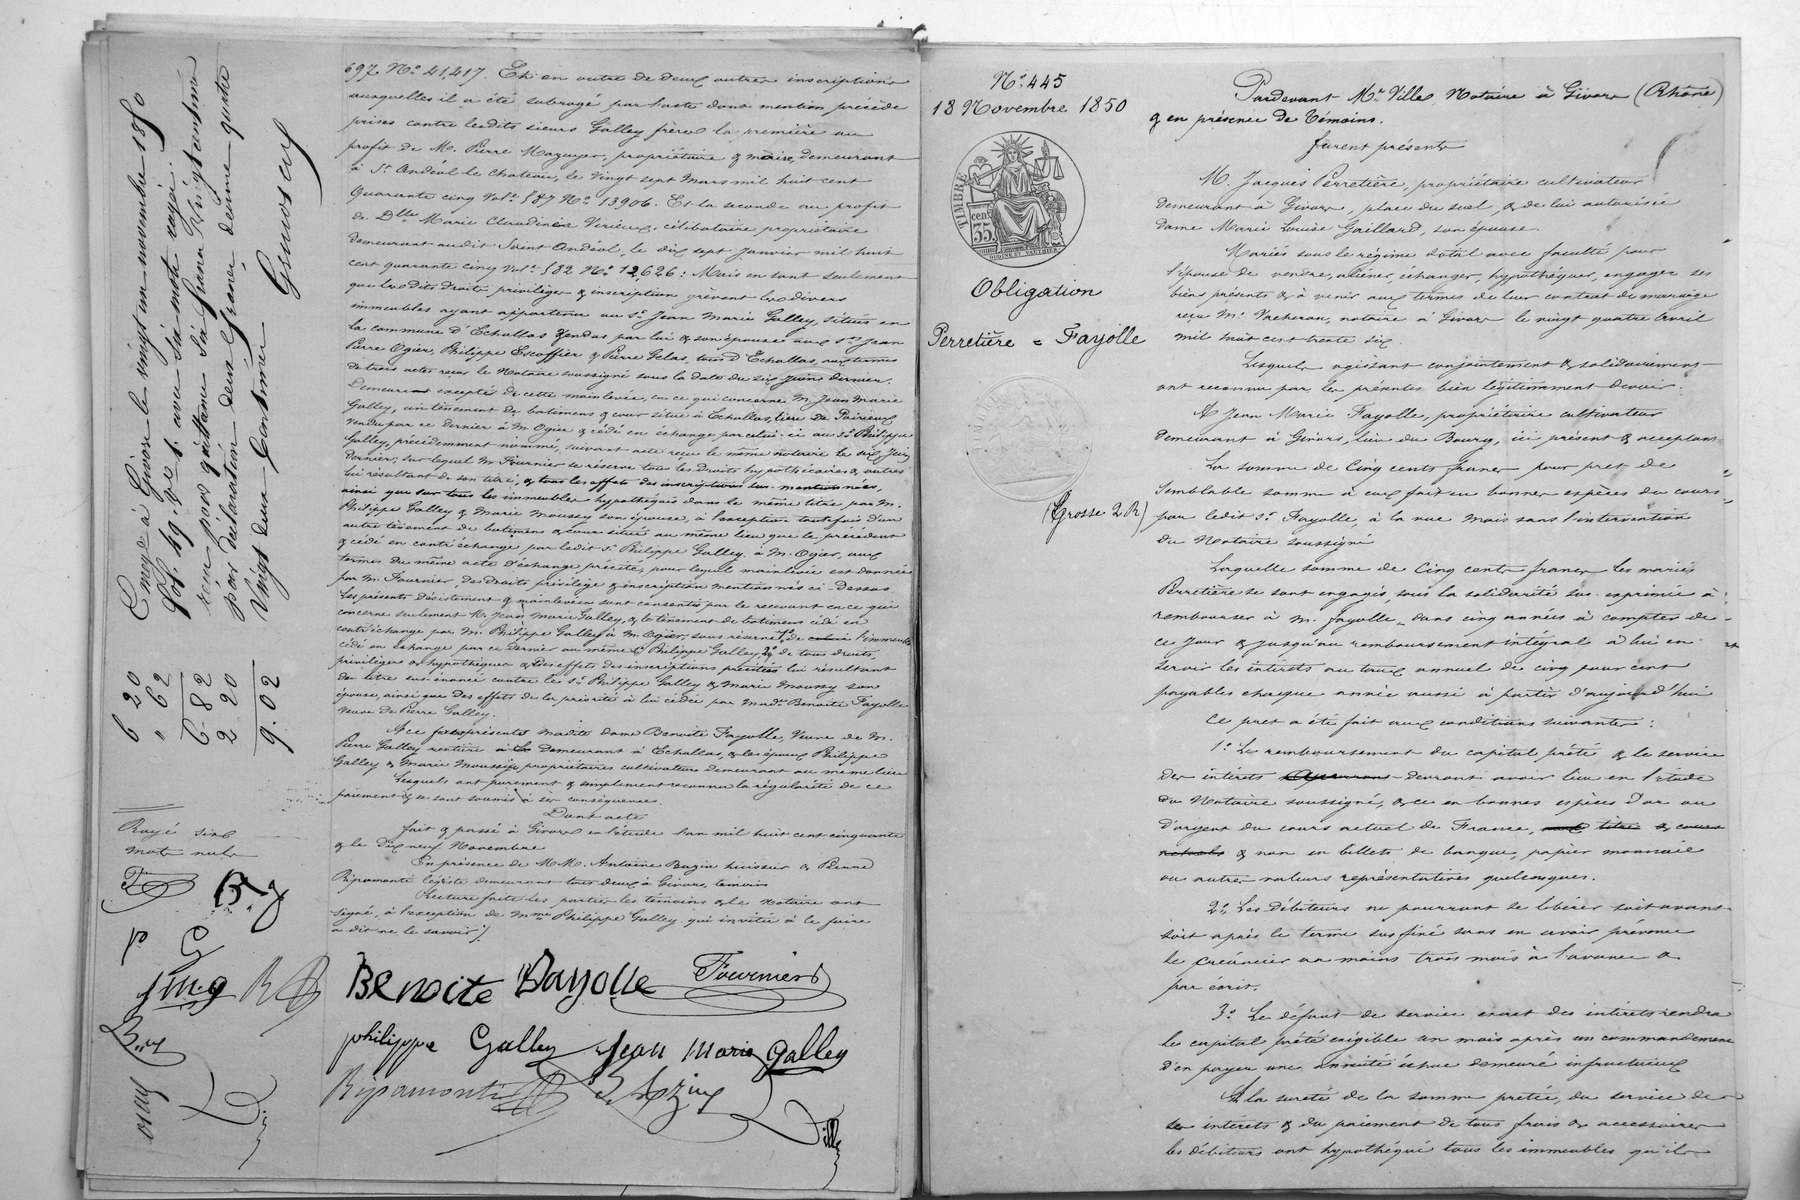 697 No 41,417. Et en outre de deux autres inscriptions
auxquelles il a été subrogé par l'acte dont mention précède
prises contre lesdits sieurs Galley frères la première au
profit de M. Pierre Mazuyer, propriétaire & maire, demeurant
à St Andéol le Chateau, le vingt sept Mars mil huit cent
quarante cinq Vol. 587 No 13906. Et la seconde au profit
de Dlle Marie Claudine célibataire propriétaire
demeurant audit Saint Andéol, le dix sept Janvier mil huit
cent quarante cinq Vol. 582 No 12,626: Mais en tant seulement
que lesdits droits, privilèges & inscription grèvent les divers
immeubles ayant appartenu au Sr Jean Marie Galley, situés en
la commune d'Echallas vendus par lui & son épouse aux Srs Jean
Pierre Ogier, Philippe Escoffier & Pierre Gelas, tous d'Echallas, aux termes
de trois actes reçus le Notaire soussigné sous la date du six Juin dernier.
Demeurent exceptés de cette mainlevée, en ce qui concerne M. Jean Marie
Galley, un tènement de batimens & cour situé à Echallas, lieu de Poirieux
vendu par ce dernier à M. Ogier & cédé en échange par celui-ci au Sr Philippe
Galley, précédemment nommé, suivant acte reçu le même notaire le six Juin
dernier; sur lequel M. Fournier se réserve tous les droits hypothécaires & autres
lui résultant de son titre, & tous les effets des inscriptions sus-mentionnées,
ainsi que sur tous les immeubles hypothéqués dans le même titre par M.
Philippe Galley & Marie Moussy son épouse, à l'exception toutefois d'un
autre tènement de batimens & cour situé au même lieu que le précédent
& cédé en contr'échange par ledit Sr Philippe Galley à M. Ogier, aux
termes du même acte d'échange précité, pour lequel mainlevée est donnée
par M. Fournier, des droits privilège & inscription mentionnés ci-dessus
Les présents désistement & mainlevée sont consentis par le recevant en ce qui
concerne seulement M. Jean Marie Galley, & le tènement de batimens cédé en
contr'échange par M. Philippe Galley à M. Ogier, sous réserve 1o de l'immeuble
cédé en échange par ce dernier au même Sr Philippe Galley, 2o de tous droits,
privilèges & hypothèques & des effets des inscriptions précitées lui résultant
du titre sus énoncé contre le Sr Philippe Galley & Marie Moussy son
épouse, ainsi que des effets de la priorité à lui cédée par Made Benoite Fayolle
veuve de Pierre Galley.
A ce furent présents madite dame Benoite Fayolle, Veuve de M.
Pierre Galley rentière à demeurant à Echallas, & les époux Philippe
Galley & Marie Moussy propriétaires cultivateurs demeurant au même lieu
Lesquels ont purement & simplement reconnu la régularité de ce
paiement & se sont soumis à ses conséquences.
Dont acte
fait & passé à Givors en l'étude l'an mil huit cent cinquante
& le Dix neuf Novembre
En présence de MM. Antoine Bazin huissier & Pierre
Ripamonte légiste demeurant tous deux à Givors, temoins
Lecture faite les parties les témoins & le Notaire ont
signé, à l'exception de Mme Philippe Galley qui invitée à le faire
a dit ne le savoir /.
Benoite Fayolle Fournier
philippe Galley Jean Marie Galley
Ripamonti Bazin
Ville
Rayé six
mots nuls
B.F
P. G
J.M.G
Enregé à Givors le vingt un novembre 1850
reçu pour quittance six francs vingt centimes
par déclaration deux francs deux décime quatre
Vingt deux Centimes
6 20
" 62
6.82
2 20
9.02
No 445
18 Novembre 1850
TIMBRE
35 cent
Obligation
Perretière = Fayolle
(Grosse 2 R)
Pardevant Me Ville Notaire à Givors (Rhône)
& en présence de Témoins.
furent présents
M. Jacques Perretière, propriétaire cultivateur
demeurant à Givors, place du suel, & de lui autorisée
Dame Marie Louise Gaillard, son épouse
Mariés sous le régime dotal avec faculté pour
l'épouse de vendre, aliéner, échanger, hypothéquer, engager ses
biens présents & à venir aux termes de leur contrat de mariage
reçu Me Vacheron, notaire à Givors le vingt quatre Avril
mil huit cent trente six.
Lesquels agissant conjointement & solidairement
ont reconnu par les présentes bien légitimement devoir:
A Jean Marie Fayolle, propriétaire cultivateur
demeurant à Givors, lieu du Bourg, ici présent & acceptant
La somme de Cinq cents francs pour prêt de
semblable somme à eux fait en bonnes espèces du cours
par ledit Sr Fayolle, à la vue mais sans l'intervention
du Notaire soussigné
Laquelle somme de Cinq cents francs les mariés
Perretière se sont engagés, sous la solidarité sus-exprimée à
rembourser à M. Fayolle, dans cinq années à compter de
ce jour & jusqu'au remboursement intégral à lui en
servir les intérêts au taux annuel de cinq pour cent
payables chaque année aussi à partir d'aujourd'hui
Ce pret a été fait aux conditions suivantes:
1o Le remboursement du capital prêté & le service
des intérêts devront avoir lieu en l'étude
du Notaire soussigné, & ce en bonnes espèces d'or ou
d'argent du cours actuel de France, aux titre & cours
actuels & non en billets de banque, papier monnaie
ou autres valeurs représentatives quelconques.
2o Les Débiteurs ne pourront se libérer soit avant
soit après le terme susfixé sans en avoir prévenu
le créancier au moins trois mois à l'avance &
par écrit.
3o Le défaut de service exact des intérêts rendra
le capital prêté exigible un mois après un commandement
d'en payer une annuité échue demeuré infructueux
A la sureté de la somme prêtée, du service des
ses intérêts & du paiement de tous frais & accessoires
les débiteurs ont hypothéqué tous les immeubles qu'ils